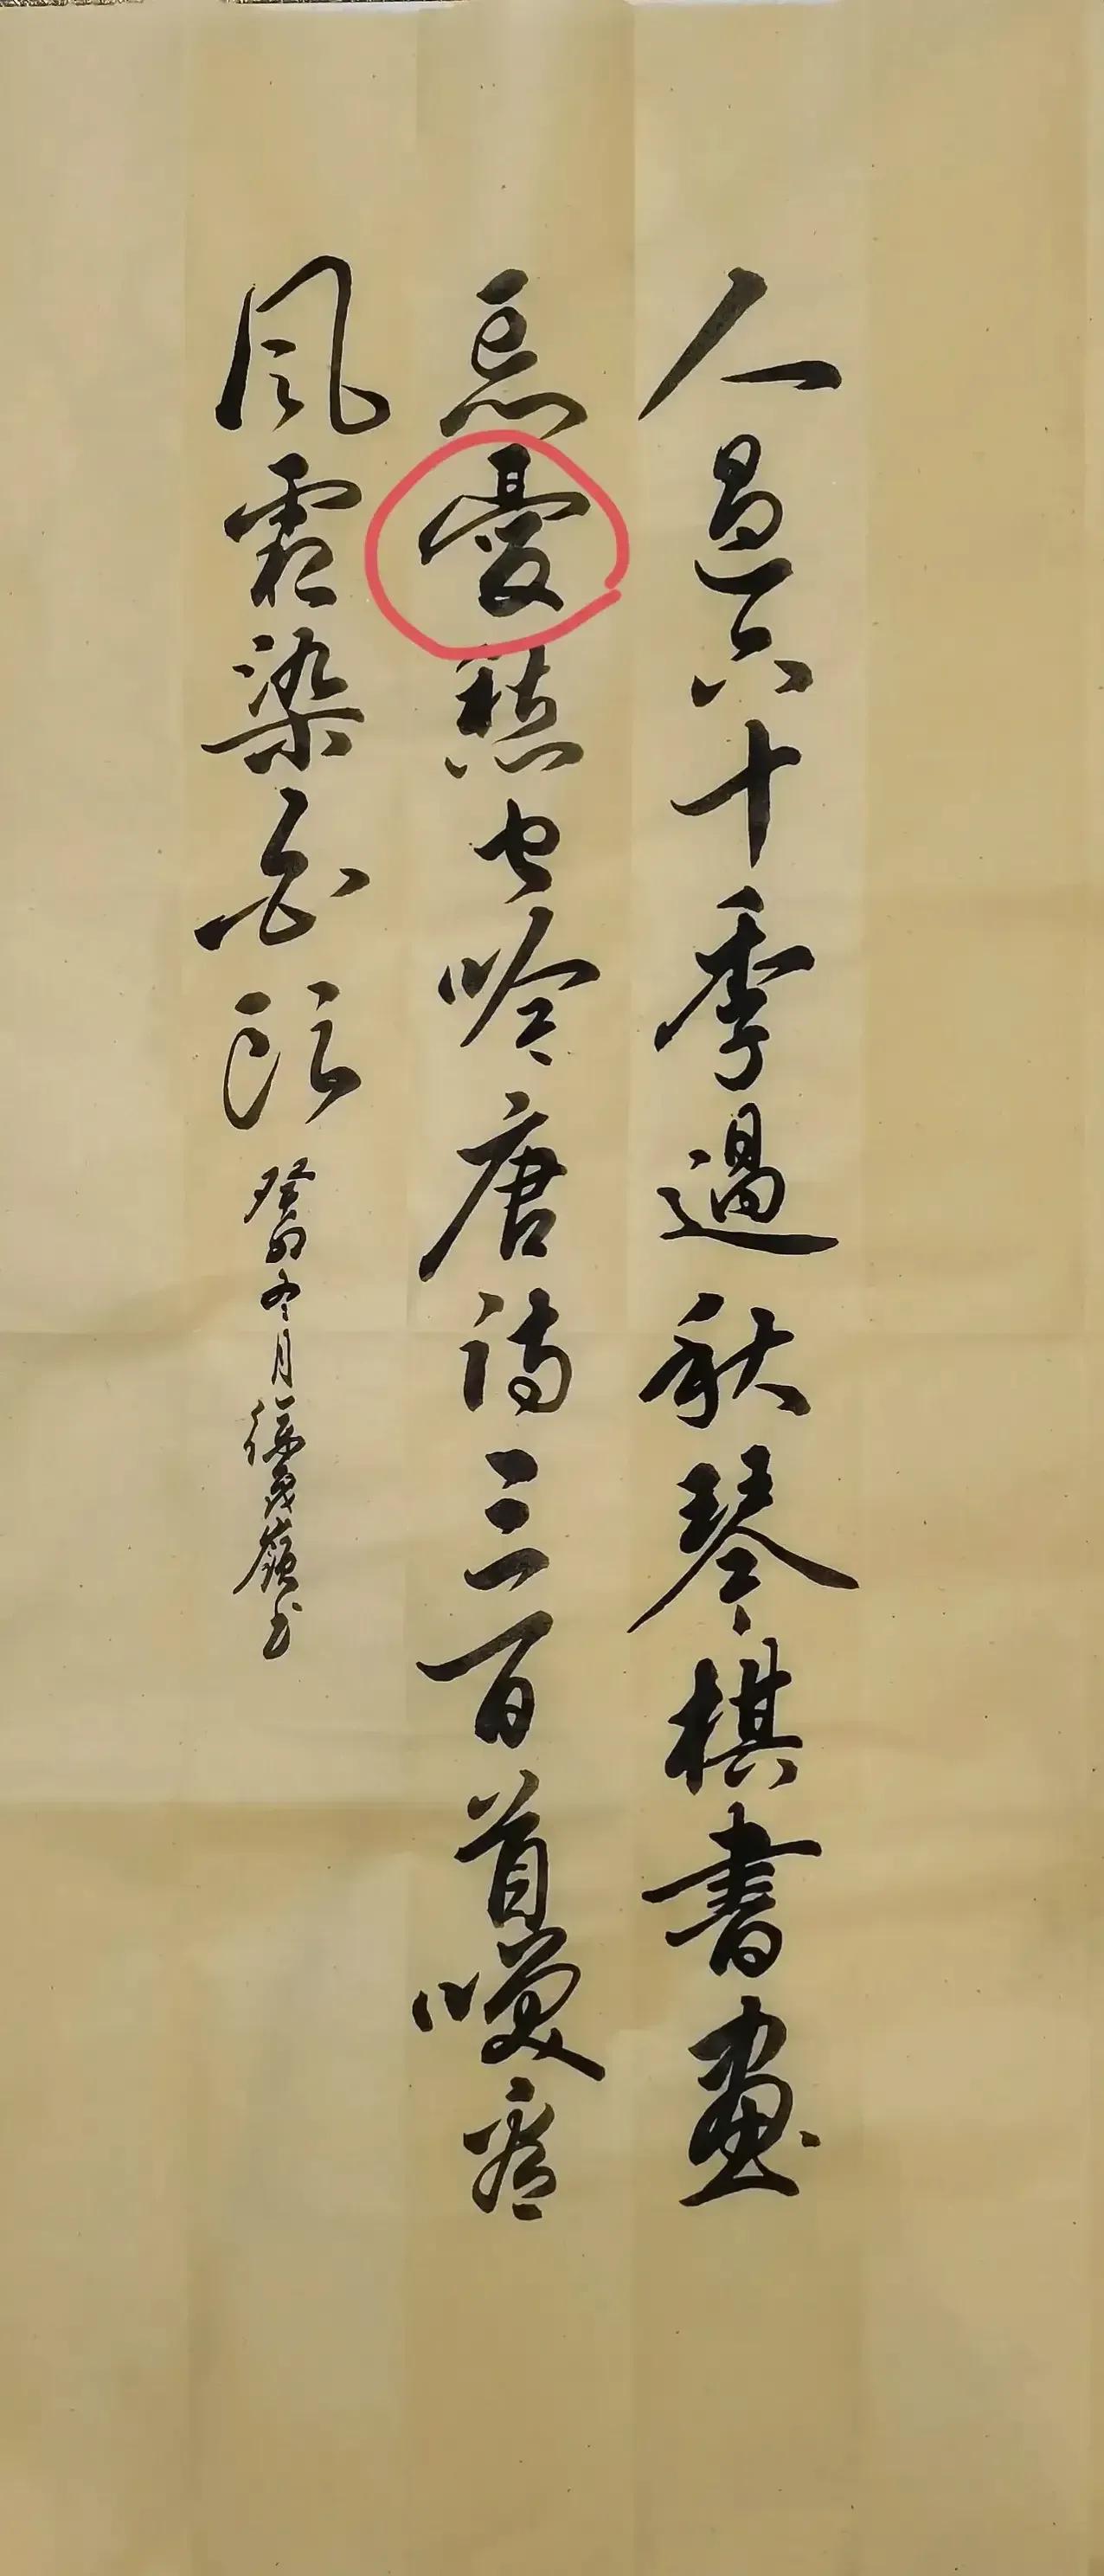 人過六十季過秋琴棋書畫
忘憂愁也吟唐詩三百首嘆看
風霜染白頭
癸卯冬月徐茂嶺書